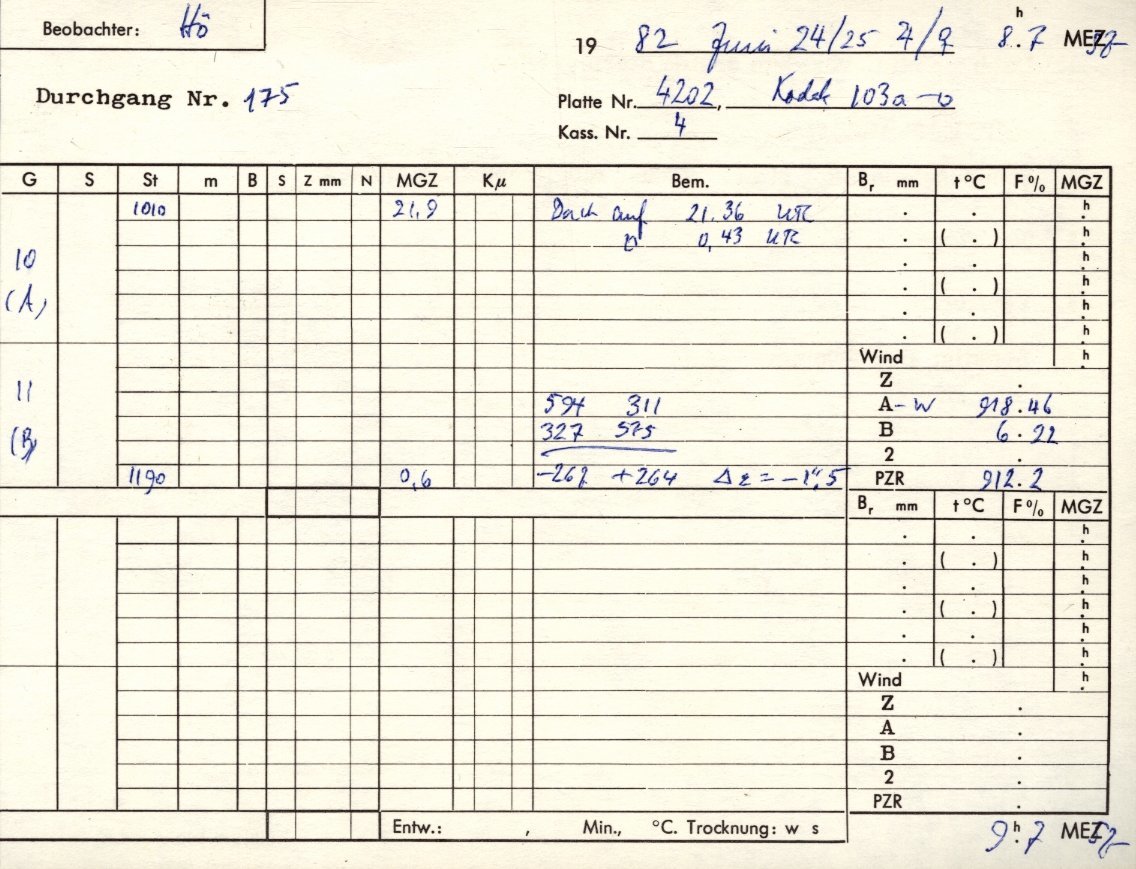 Beobachter: Hö
19 82 Juni 24/25 4/9 8h.7 MEZ
Durchgang Nr. 175
Platte Nr. 4202, Kodak 103a-o
Kass. Nr. 4
G S St m B S Z mm N MGZ Kμ Bem. Br mm t °C F % MGZ
1010 21,9 Dach auf 21.36 UTC . . h.
0,43 UTC . ( . ) h.
10 . . h.
(A) . ( . ) h.
. . h.
. ( . ) h.
Wind h.
Z .
11 594 311 A-W 918.46
(B) 327 575 B 6.22
2 .
1190 0,6 -267 +264 Δε = -1",5 PZR 912.2
Br mm t °C F % MGZ
. . h.
. ( . ) h.
. . h.
. ( . ) h.
. . h.
. ( . ) h.
Wind h.
Z .
A .
B .
2 .
PZR .
Entw.: , Min., °C. Trocknung: w s
9h.7 MEZ